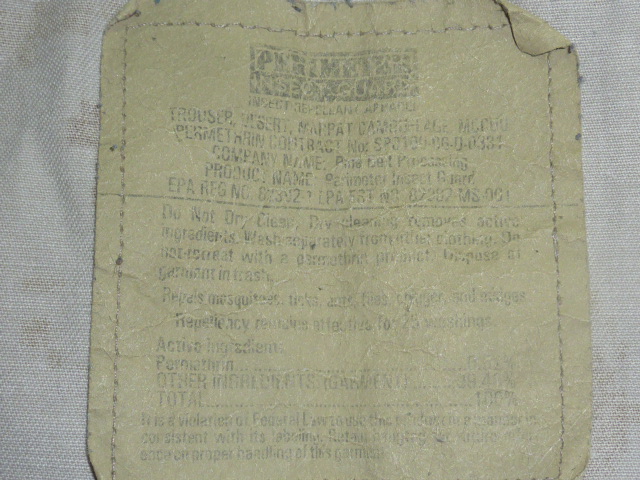 PERIMETER
INSECT GUARD
INSECT REPELLENT APPAREL
TROUSER, DESERT, MARPAT CAMOUFLAGE, MCCUU
PERMETHRIN CONTRACT No:
COMPANY NAME: Pine Belt Processing
PRODUCT NAME: Perimeter Insect Guard
EPA REG NO. EPA EST NO.
Do Not Dry Clean, Dry-cleaning removes active
ingredients. Wash separately from other clothing. Do
not retreat with a permethrin product. Dispose of
garment in trash.
Repels mosquitoes, ticks, ants, flies, chigger, and midges
Repellency remains effective for 25 washings.
Active Ingredients
Permethrin
OTHER INGREDIENTS (GARMENT)
TOTAL 100%
It is a violation of Federal Law to use this product in a manner in
consistent with its labeling. for future
ence on proper handling of this garment